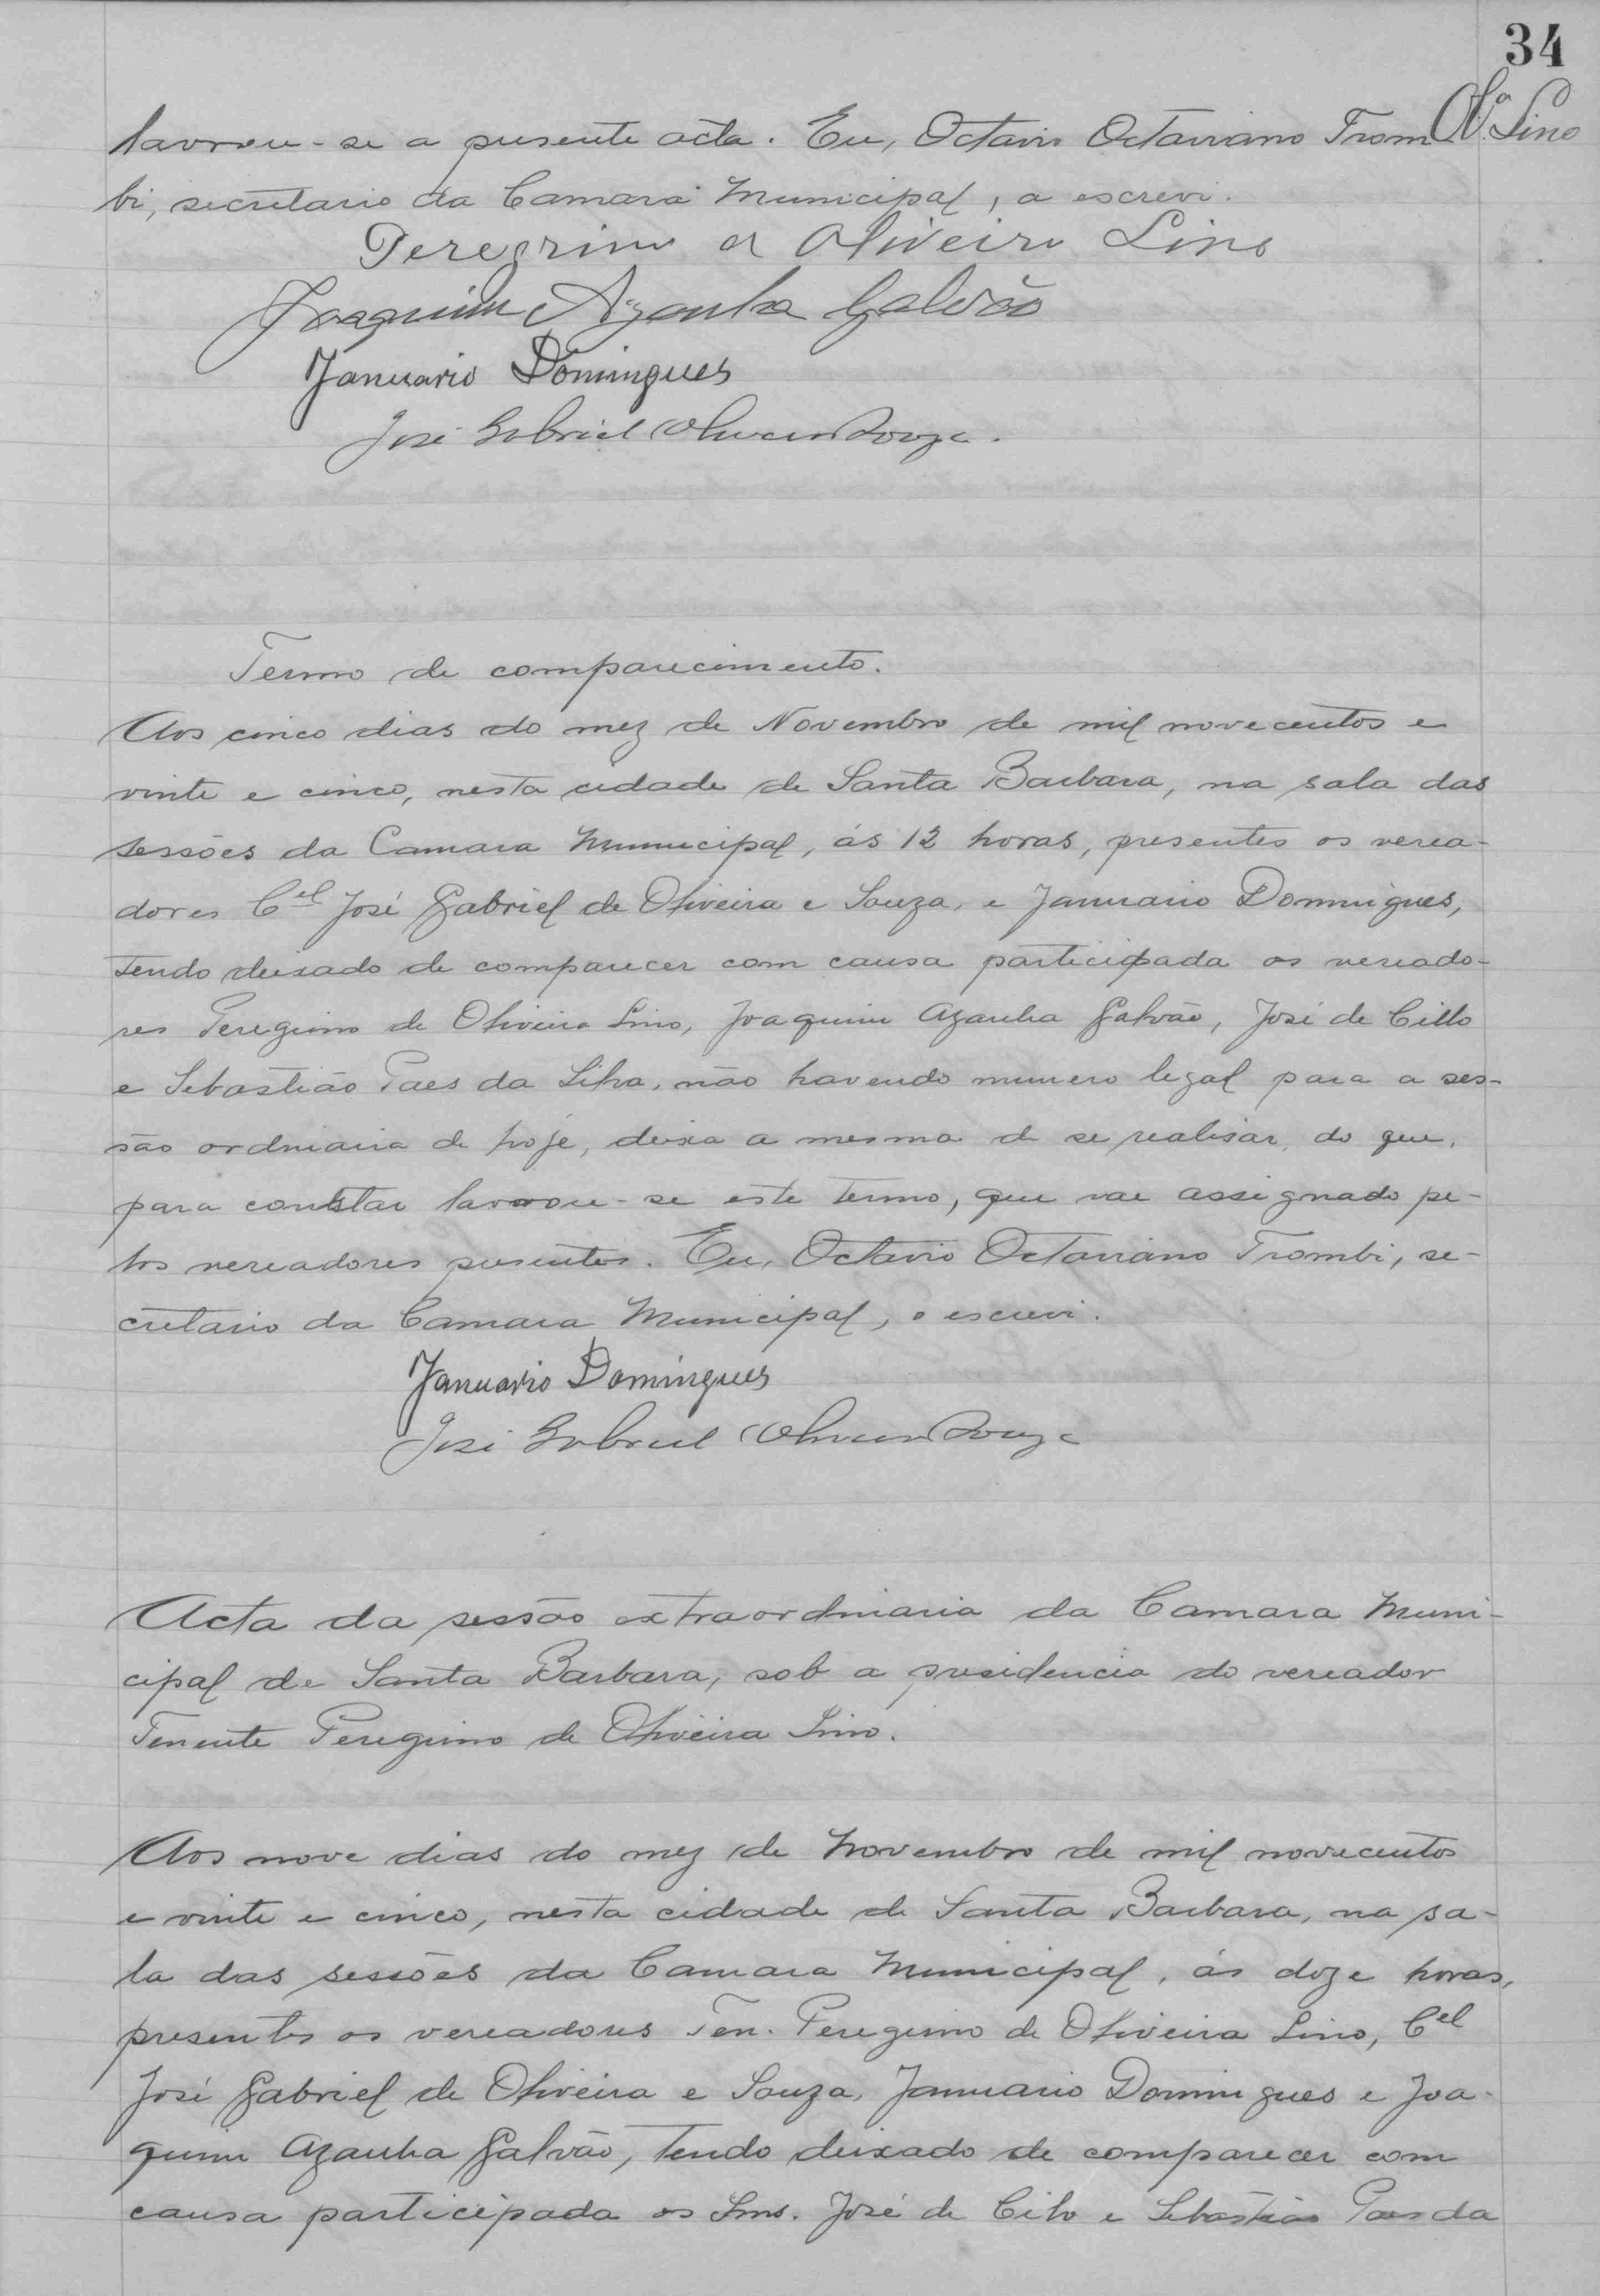 34
Ol.ª Lino
lavrou-se a presente acta. Eu, Octavio Octaviano Trom
bi, secretario da Camara Municipal, a escrevi.
Peregrino d Oliveira Lino
Joaquim Azanha Galvão
Januario Domingues
José Gabriel Oliveira Souza.
Termo de comparecimento.
Aos cinco dias do mez de Novembro de mil novecentos e
vinte e cinco, nesta cidade de Santa Barbara, na sala das
sessões da Camara Municipal, ás 12 horas, presentes os verea-
dores Cel José Gabriel de Oliveira e Souza, e Januario Domingues,
tendo deixado de comparecer com causa participada os vereado-
res Peregrino de Oliveira Lino, Joaquim Azanha Galvão, José de Cillo
e Sebastião Paes da Silva, não havendo numero legal para a ses-
são ordinaria de hoje, deixa a mesma de se realisar, do que,
para constar lavrou-se este termo, que vae assignado pe-
los vereadores presentes. Eu, Octavio Octaviano Trombi, se-
cretario da Camara Municipal, o escrevi.
Januario Domingues
José Gabriel Oliveira Souza
Acta da sessão extraordinaria da Camara Muni-
cipal de Santa Barbara, sob a presidencia do vereador
Tenente Peregrino de Oliveira Lino.
Aos nove dias do mez de Novembro de mil novecentos
e vinte e cinco, nesta cidade de Santa Barbara, na sa-
la das sessões da Camara Municipal, ás doze horas,
presentes os vereadores Ten. Peregrino de Oliveira Lino, Cel
José Gabriel de Oliveira e Souza, Januario Domingues e Joa-
quim Azanha Galvão, tendo deixado de comparecer com
causa participada os Snrs. José de Cillo e Sebastião Paes da